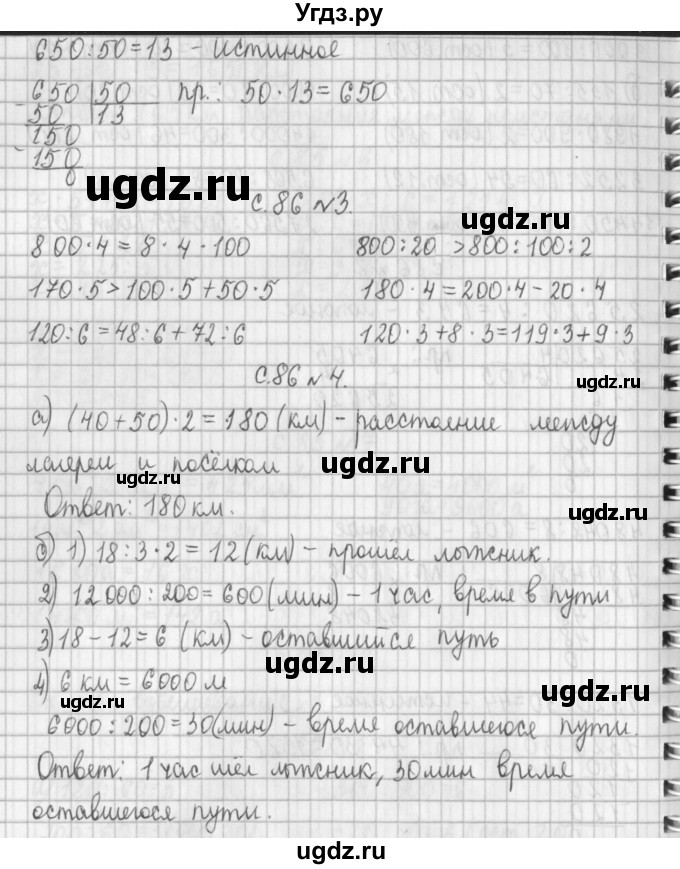 Угдз.ру
650:50=13 - истинное
650 50 пр.: 50·13=650
50 13
150
150
0
ugdz.ru
с.86 №3.
ugdz.ru
800·4=8·4·100 800:20 >800:100:2
170·5>100·5+50·5 180·4=200·4-20·4
120:6=48:6+72:6 120·3+8·3=119·3+9·3
с.86 №4.
ugdz.ru
а) (40+50)·2=180(км)-расстояние между
лагерем и посёлком
ugdz.ru
ugdz.ru
Ответ: 180км.
ugdz.ru
б) 1) 18:3·2=12(км)-прошёл лыжник.
2) 12000:200=600(мин)-1 час, время в пути
3)18-12=6 (км)-оставшийся путь
ugdz.ru
4) 6 км=6000м
ugdz.ru
ugdz.ru
6000:200=30(мин)-время оставшегося пути.
Ответ: 1 час шёл лыжник, 30мин время
оставшегося пути.
ugdz.ru
ugdz.ru